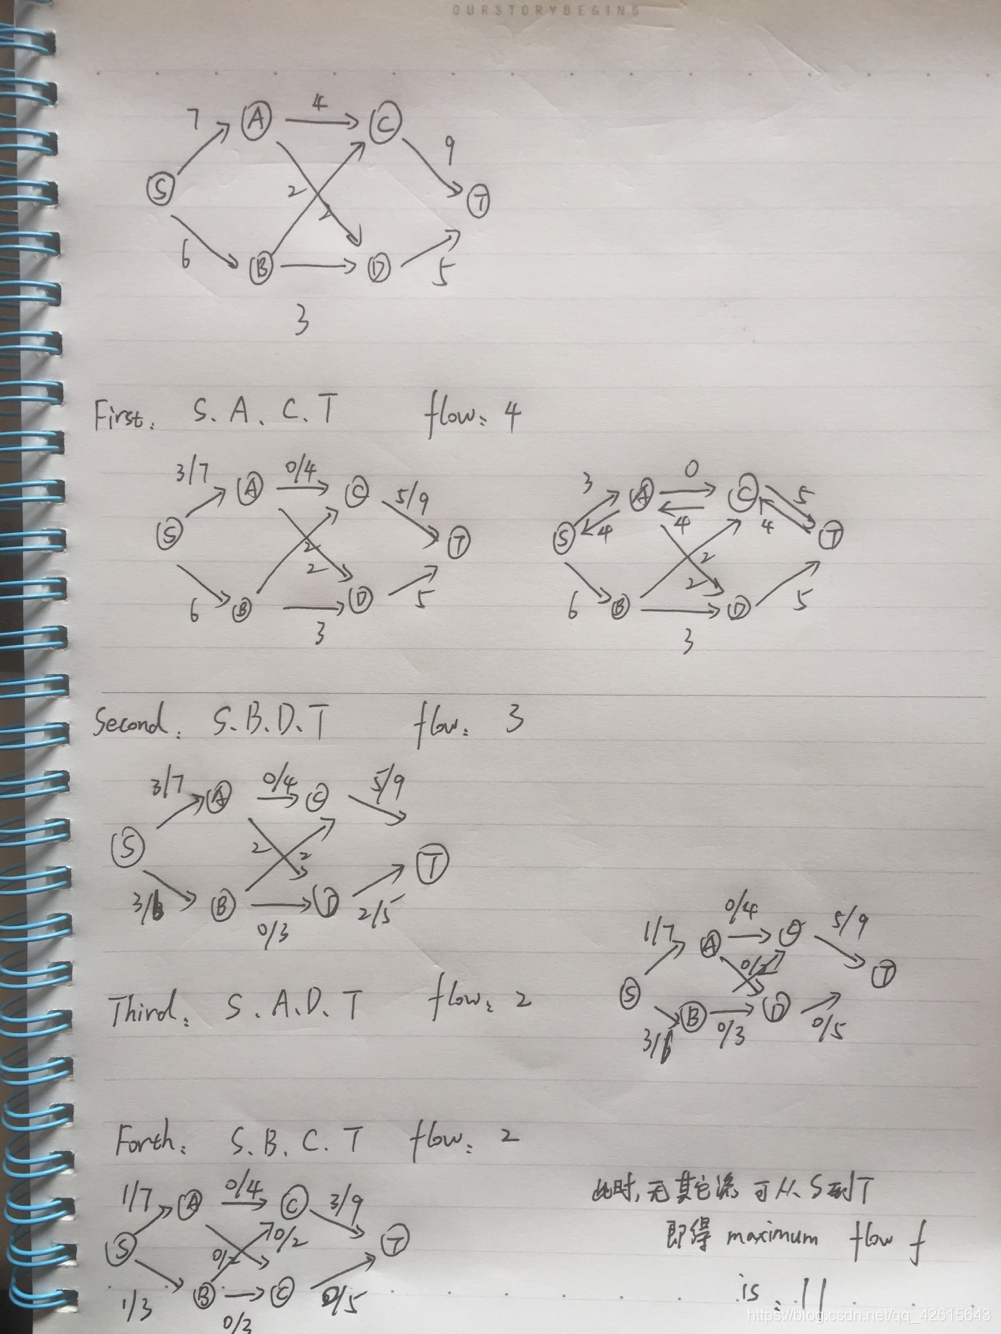 OURSTORYBEGINS
7 A 4 C 9
S 2 2 T
6 B D 5
3
First: S.A.C.T flow: 4
3/7 A 0/4 C 5/9
S 2 2 T
6 B 3 D 5
3 A 0 C 5
S 4 4 4 T
2 2
6 B 3 D 5
Second: S.B.D.T flow: 3
3/7 A 0/4 C 5/9
S 2 2 T
3/6 B 0/3 D 2/5
1/7 A 0/4 C 5/9
S 0/2 T
3/6 B 0/3 D 0/5
Third: S.A.D.T flow: 2
Forth: S.B.C.T flow: 2
1/7 A 0/4 C 3/9
S 0/2 0/2 T
1/3 B 0/3 C 0/5
此时,无其它流可从S到T
即得 maximum flow f
is: 11
https://blog.csdn.net/qq_42615643